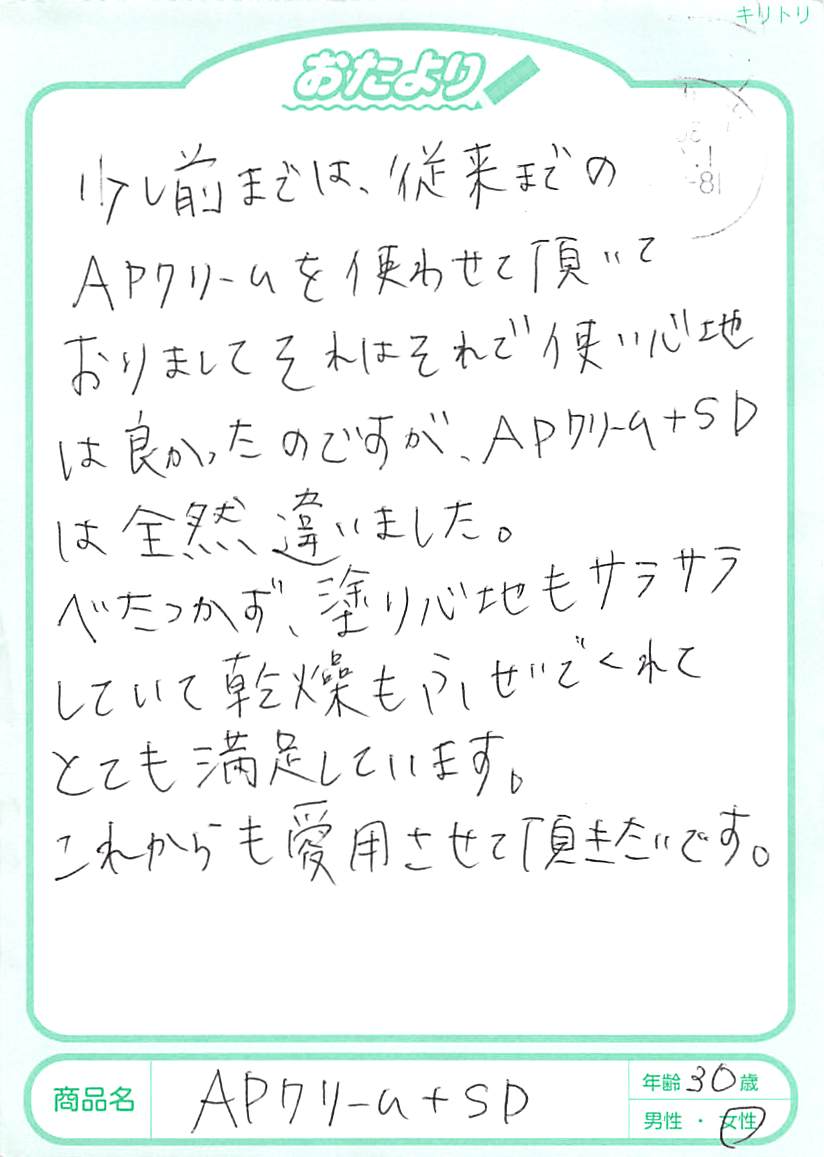 キリトリ
おたより
少し前までは、従来までの
APクリームを使わせて頂いて
おりましてそれはそれで使い心地
は良かったのですが、APクリーム+SD
は全然違いました。
べたつかず、塗り心地もサラサラ
していて乾燥もふせいでくれて
とても満足しています。
これからも愛用させて頂きたいです。
商品名 APクリーム+SD
年齢 30 歳
男性 ・ 女性